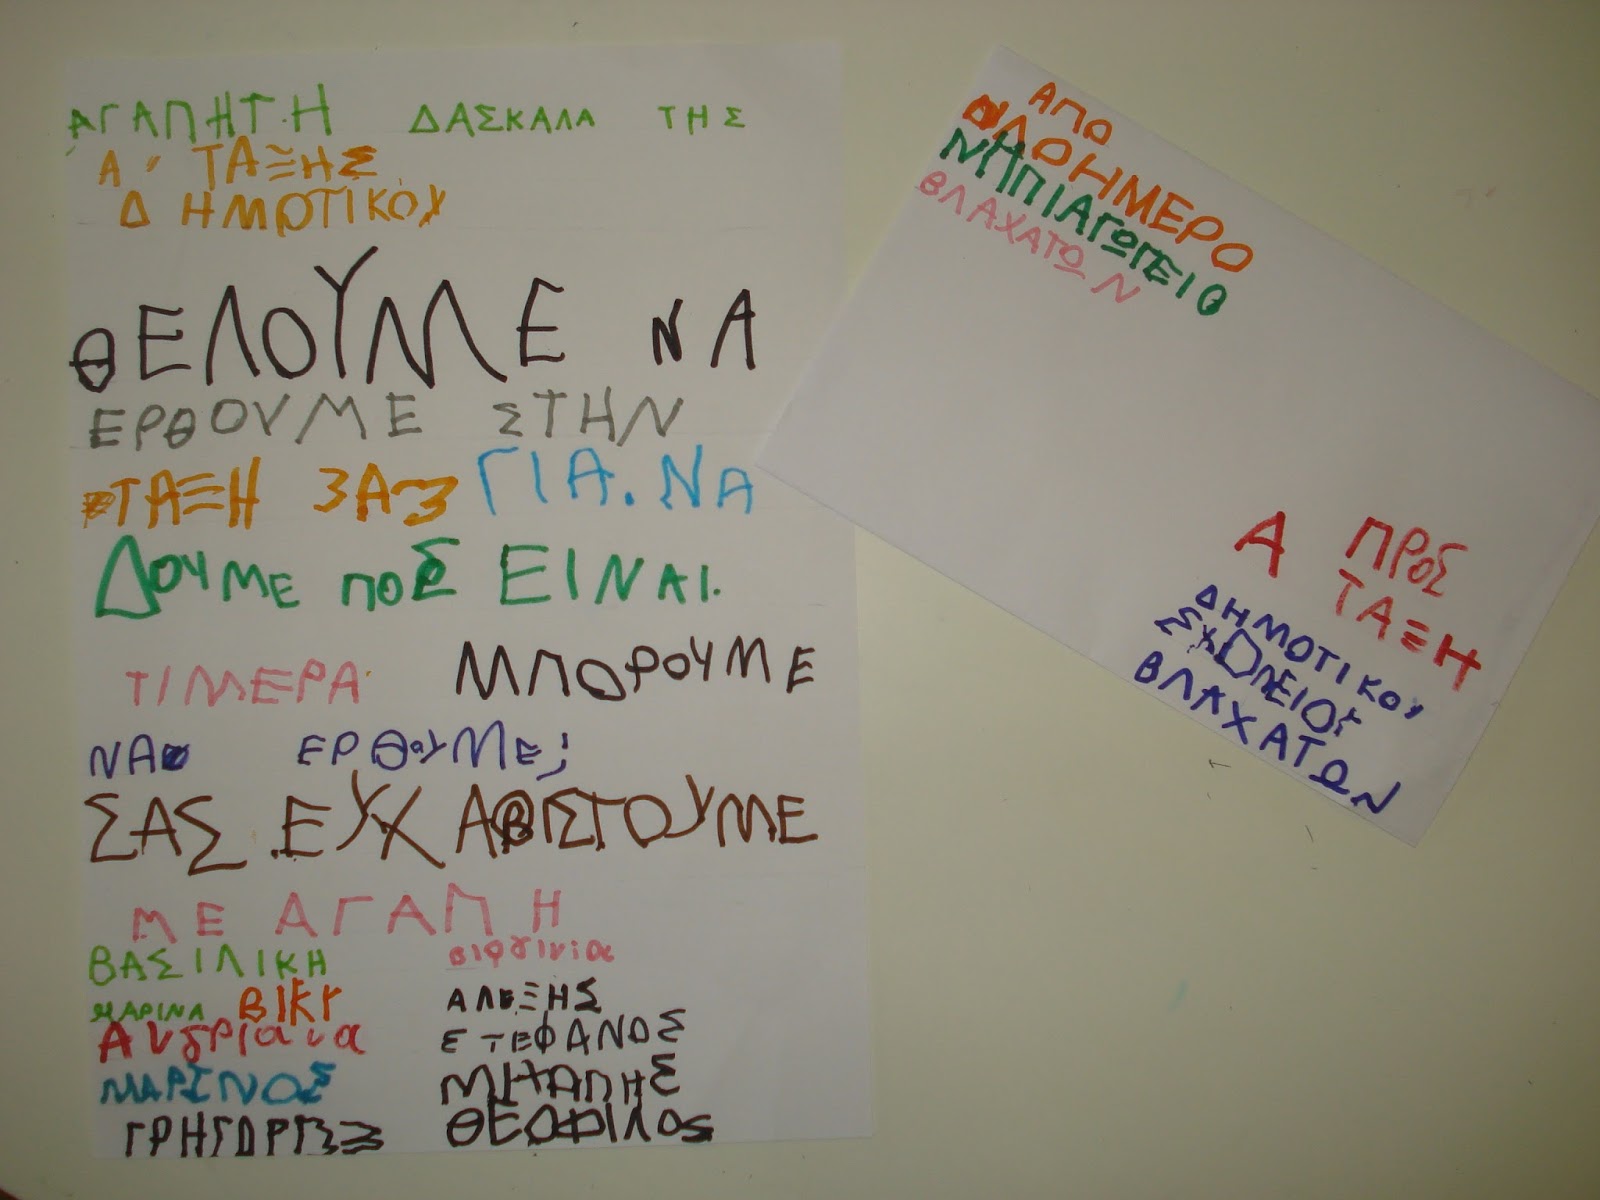 ΑΓΑΠΗΤΗ ΔΑΣΚΑΛΑ ΤΗΣ
Α' ΤΑΞΗΣ
ΔΗΜΟΤΙΚΟΥ
ΘΕΛΟΥΜΕ ΝΑ
ΕΡΘΟΥΜΕ ΣΤΗΝ
ΤΑΞΗ ΣΑΣ ΓΙΑ.ΝΑ
ΔΟΥΜΕ ΠΟΣ ΕΙΝΑΙ.
ΤΙ ΜΕΡΑ ΜΠΟΡΟΥΜΕ
ΝΑ ΕΡΘΟΥΜΕ;
ΣΑΣ ΕΥΧΑΡΙΣΤΟΥΜΕ
ΜΕ ΑΓΑΠΗ
ΒΑΣΙΛΙΚΗ βιργινια
ΜΑΡΙΝΑ ΒΙΚΥ ΑΛΕΞΗΣ
Ανδριανα ΣΤΕΦΑΝΟΣ
ΜΑΡΙΝΟΣ ΜΙΧΑΛΗΣ
ΓΡΗΓΟΡΗΣ ΘΕΟΦΙΛΟΣ
ΑΠΟ
ΟΛΟΗΜΕΡΟ
ΝΗΠΙΑΓΩΓΕΙΟ
ΒΛΑΧΑΤΩΝ
ΠΡΟΣ
Α ΤΑΞΗ
ΔΗΜΟΤΙΚΟΥ
ΣΧΟΛΕΙΟΥ
ΒΛΑΧΑΤΩΝ